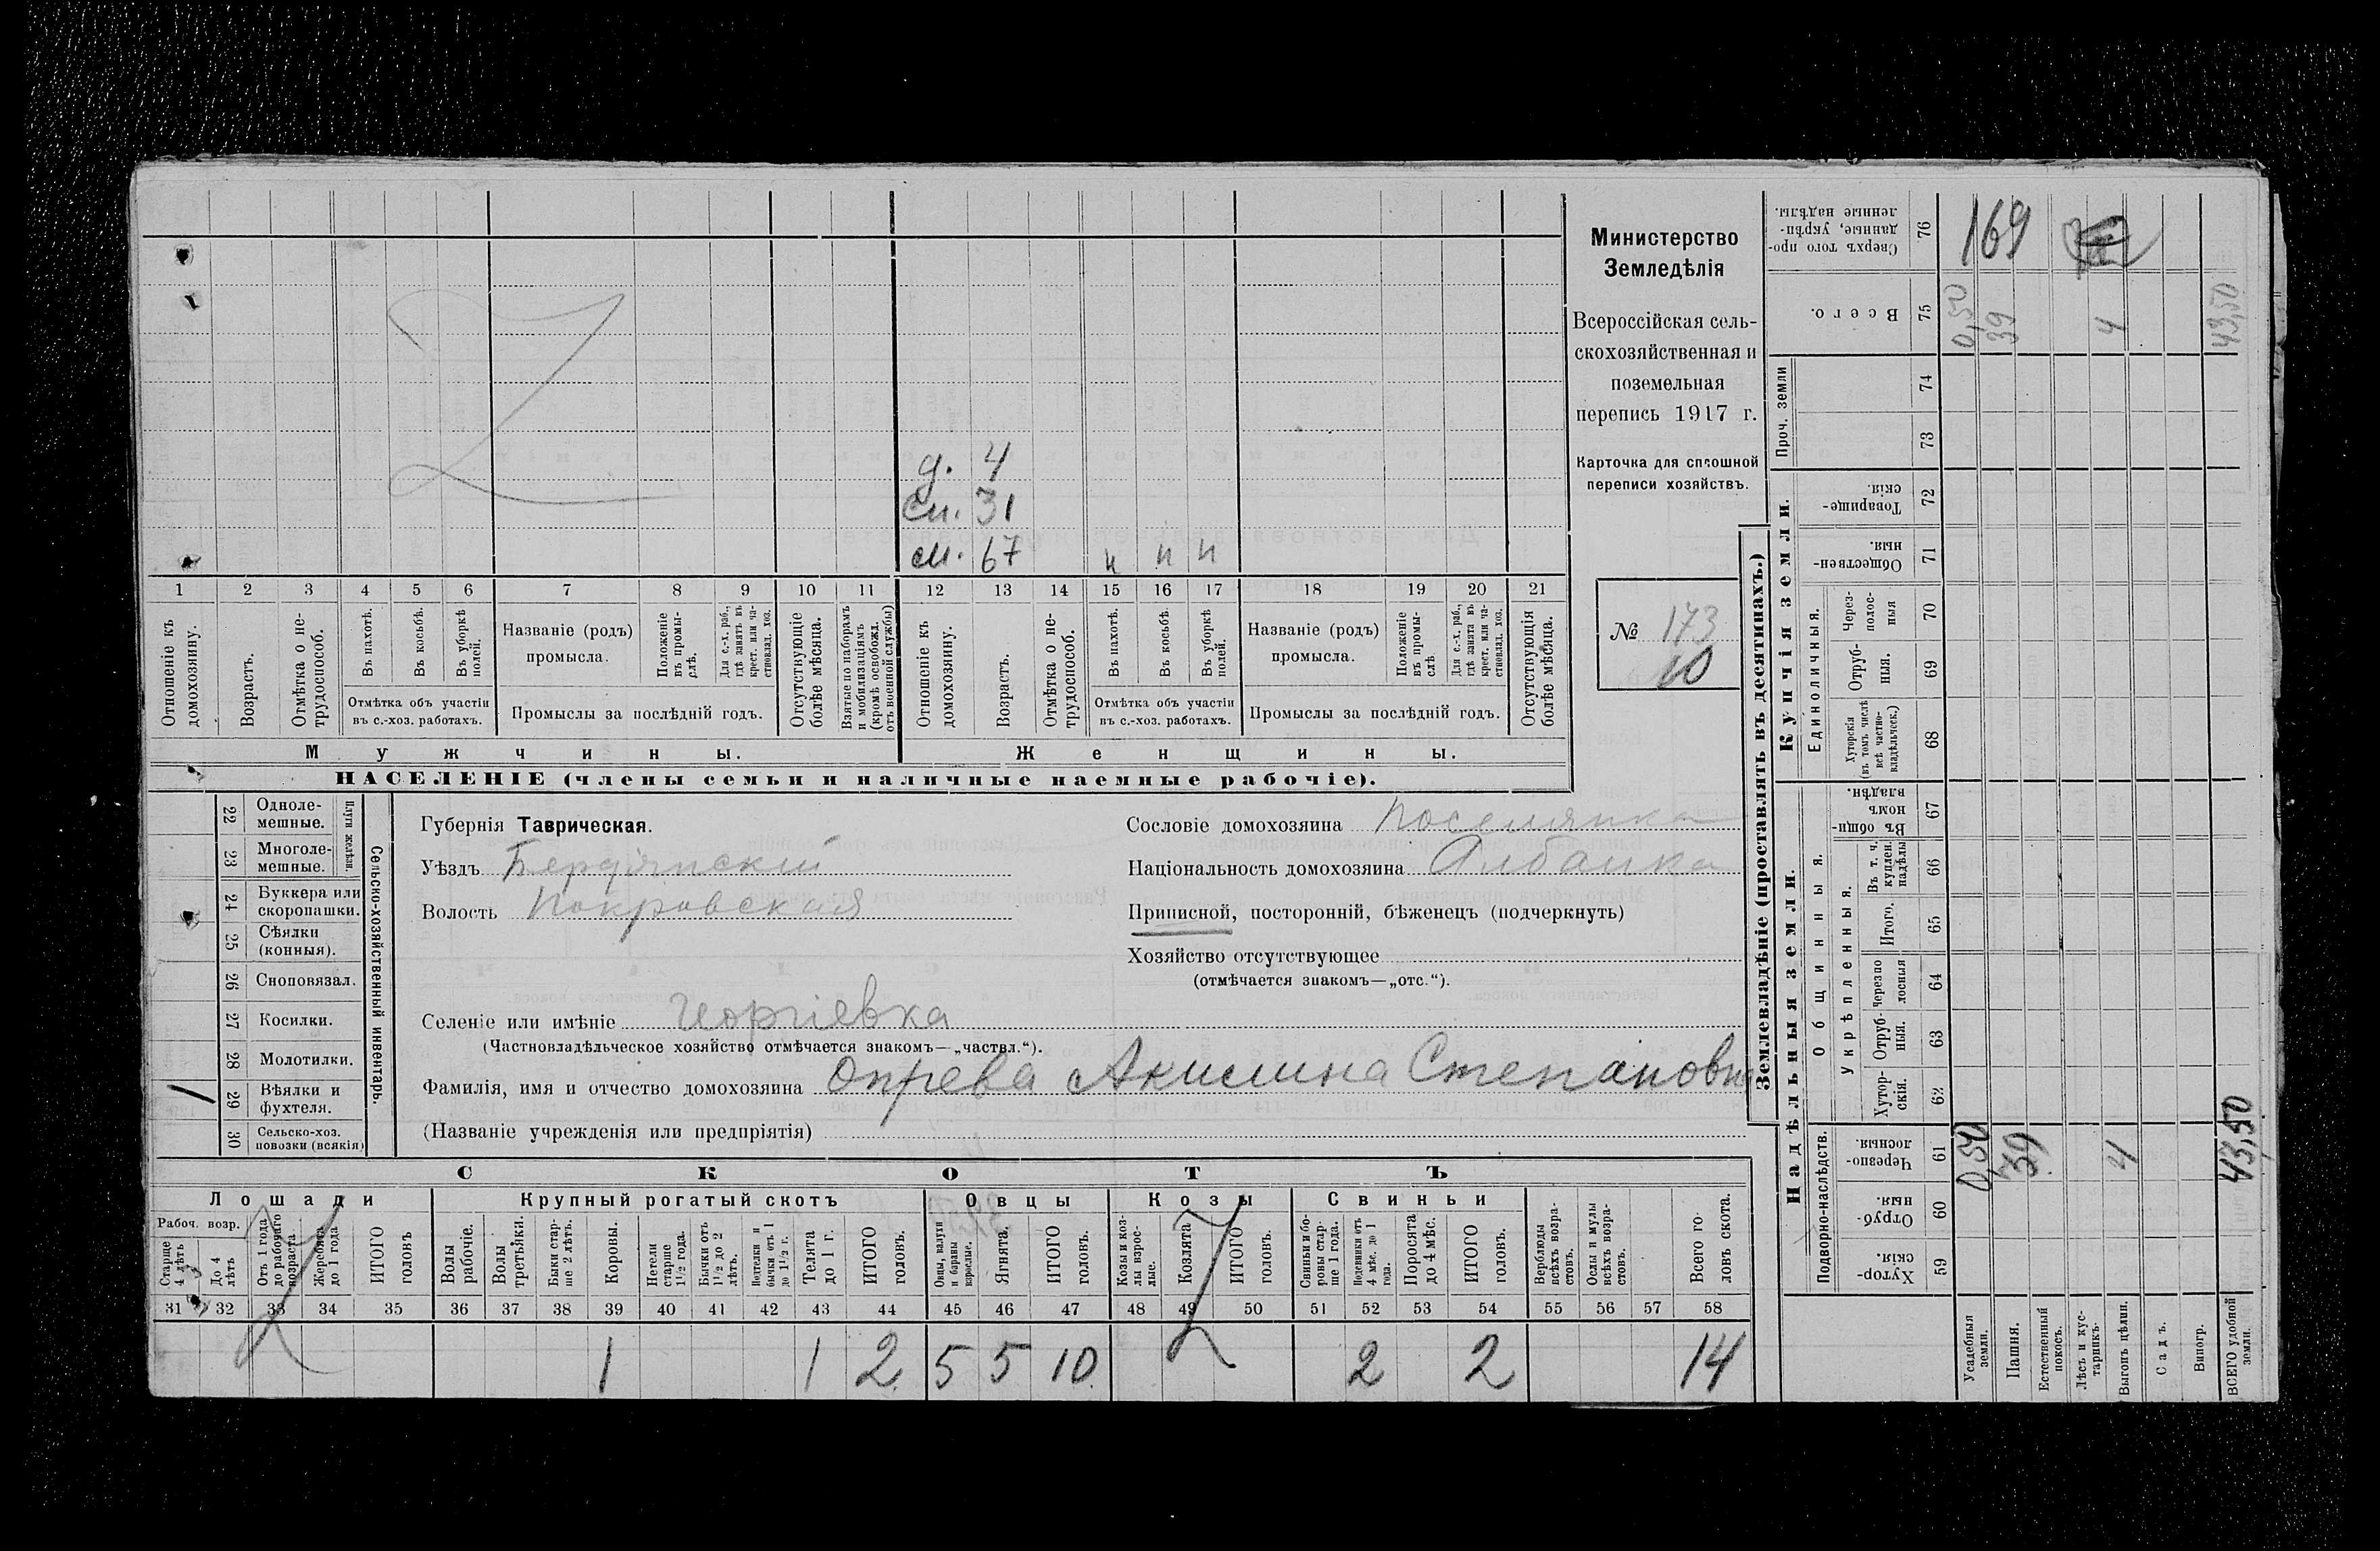 Министерство
Земледѣлія
Всероссійская сель-
скохозяйственная и
поземельная
перепись 1917 г.
Карточка для сплошной
переписи хозяйствъ.
№ 173
10
д. 4
сн. 31
см. 67 н н н
1 2 3 4 5 6 7 8 9 10 11 12 13 14 15 16 17 18 19 20 21
Отношеніе къ домохозяину.
Возрастъ.
Отмѣтка о не-трудоспособ.
Въ пахотѣ.
Въ косьбѣ.
Въ уборкѣ полей.
Отмѣтка объ участіи
въ с.-хоз. работахъ.
Названіе (родъ)
промысла.
Положеніе въ промы-слѣ.
Для с.-х. раб., гдѣ занятъ въ крест. или ча-стновлад. хоз.
Промыслы за послѣдній годъ.
Отсутствующіе болѣе мѣсяца.
Взятые по наборамъ и мобилизаціямъ (кромѣ освобожд. отъ военной службы)
Отношеніе къ домохозяину.
Возрастъ.
Отмѣтка о не-трудоспособ.
Въ пахотѣ.
Въ косьбѣ.
Въ уборкѣ полей.
Отмѣтка объ участіи
въ с.-хоз. работахъ.
Названіе (родъ)
промысла.
Положеніе въ промы-слѣ.
Для с.-х. раб., гдѣ занята въ крест. или ча-стновлад. хоз.
Промыслы за послѣдній годъ.
Отсутствующія болѣе мѣсяца.
Мужчины. Женщины.
НАСЕЛЕНІЕ (члены семьи и наличные наемные рабочіе).
Сельско-хозяйственный инвентарь.
Плуги желѣзн.
22 Одноле-мешные.
23 Многоле-мешные.
24 Буккера или скоропашки.
25 Сѣялки (конныя).
26 Сноповязал.
27 Косилки.
28 Молотилки.
1 29 Вѣялки и фухтеля.
30 Сельско-хоз. повозки (всякія)
Губернія Таврическая.
Уѣздъ Бердянскій
Волость Покровская
Селеніе или имѣніе Георгіевка
(Частновладѣльческое хозяйство отмѣчается знакомъ—„частвл.“).
Фамилія, имя и отчество домохозяина Опрева Акимина Степановна
(Названіе учрежденія или предпріятія)
Сословіе домохозяина Поселянка
Національность домохозяина Албанка
Приписной, посторонній, бѣженец (подчеркнуть)
Хозяйство отсутствующее
(отмѣчается знакомъ—„отс.“).
СКОТЪ
Лошади Крупный рогатый скотъ Овцы Козы Свиньи
Рабоч. возр.
Старше 4 лѣтъ
До 4 лѣтъ
Отъ 1 года до рабочаго возраста
Жеребята до 1 года
ИТОГО головъ
Волы рабочіе.
Волы третьяки.
Быки стар-ше 2 лѣтъ.
Коровы.
Нетели старше 1½ года.
Бычки отъ 1½ до 2 лѣтъ.
Нетелки и бычки отъ 1 до 1½ г.
Телята до 1 г.
ИТОГО головъ.
Овцы, валухи и бараны взрослые.
Ягнята.
ИТОГО головъ.
Козы и коз-лы взрос-лые.
Козлята
ИТОГО головъ.
Свиньи и бо-ровы стар-ше 1 года.
Подсвинки отъ 4 мѣс. до 1 года.
Поросята до 4 мѣс.
ИТОГО головъ.
Верблюды всѣхъ возра-стовъ.
Ослы и мулы всѣхъ возра-стовъ.
Всего го-ловъ скота.
31 32 33 34 35 36 37 38 39 40 41 42 43 44 45 46 47 48 49 50 51 52 53 54 55 56 57 58
1 1 2 5 5 10 2 2 14
Землевладѣніе (проставлять въ десятинахъ.)
Надѣльныя земли. Купчія земли. Проч. земли
Подворно-наслѣдств.
Общинныя.
Укрѣпленныя.
Единоличныя.
Сверхъ того про-данные, укрѣп-ленные надѣлы. 76 169
Всего. 75 0,50 39 4 43,50
74
73
Товарище-скія. 72
Обществен-ныя. 71
Через-полос-ныя 70
Отруб-ныя. 69
Хуторскія (въ томъ числѣ всѣ частно-владѣльческ.) 68
Въ общи-номъ владѣн. 67
Въ т. ч. куплен. надѣлы 66
Итого. 65
Черезпо лосныя 64
Отруб-ныя. 63
Хутор-скія. 62
Черезпо-лосныя. 61 0,50 39 4 43,50
Отруб-ныя. 60
Хутор-скія. 59
Усадебныя земли.
Пашня.
Естественный покосъ.
Лѣсъ и кус-тарникъ.
Выгонъ цѣлин.
Садъ.
Виногр.
ВСЕГО удобной земли.